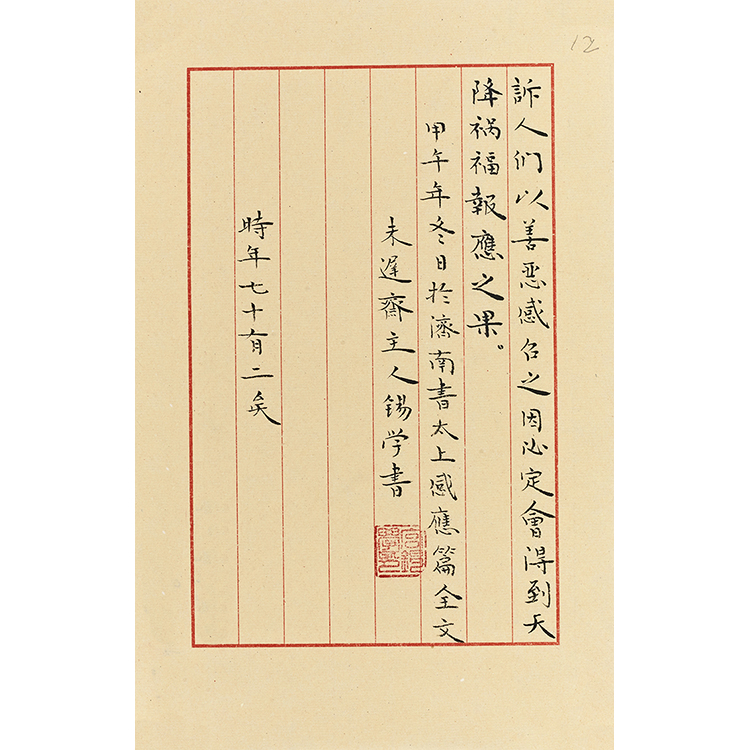 12
訴人们以善恶感召之因必定會得到天
降祸福報應之果。
甲午年冬日於濟南書太上感應篇全文
未遲齋主人锡学書
時年七十有二矣